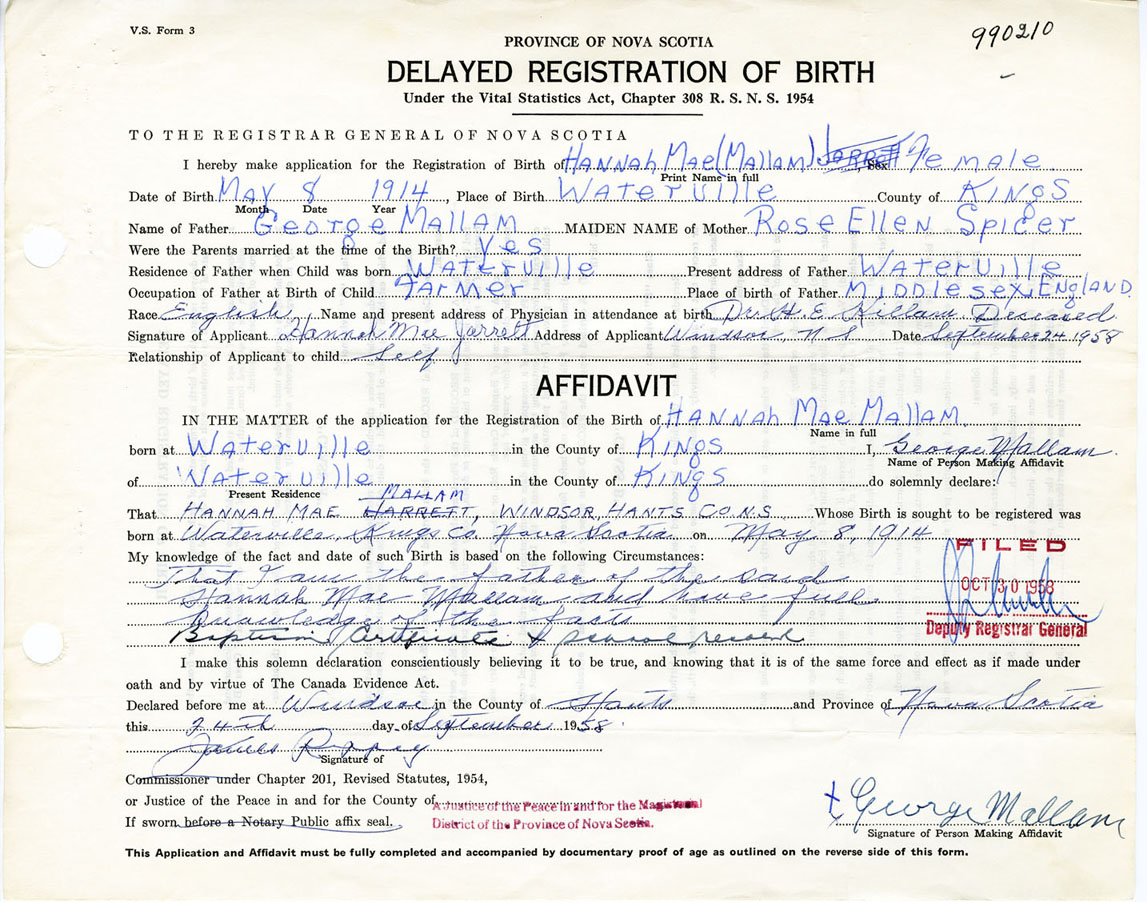 V.S. Form 3
990210
PROVINCE OF NOVA SCOTIA
DELAYED REGISTRATION OF BIRTH
Under the Vital Statistics Act, Chapter 308 R. S. N. S. 1954
TO THE REGISTRAR GENERAL OF NOVA SCOTIA
I hereby make application for the Registration of Birth of HANNAH MAE (MALLAM) JARRETT, Sex Female
Print Name in full
Date of Birth MAY 8 1914, Place of Birth WATERVILLE County of KINGS
Month Date Year
Name of Father George MALLAM MAIDEN NAME of Mother ROSE ELLEN SPICER
Were the Parents married at the time of the Birth? Yes
Residence of Father when Child was born WATERVILLE Present address of Father WATERVILLE
Occupation of Father at Birth of Child FARMER Place of birth of Father MIDDLESEX, ENGLAND
Race English, Name and present address of Physician in attendance at birth Dr. H. E. Killam Deceased
Signature of Applicant Hannah Mae Jarrett Address of Applicant Windsor, N S Date September 24 1958
Relationship of Applicant to child Self
AFFIDAVIT
IN THE MATTER of the application for the Registration of the Birth of HANNAH MAE MALLAM
Name in full
born at WATERVILLE in the County of KINGS I, George Mallam
Name of Person Making Affidavit
of WATERVILLE in the County of KINGS do solemnly declare:
Present Residence
MALLAM
That HANNAH MAE JARRETT, WINDSOR, HANTS CO. N.S. Whose Birth is sought to be registered was
born at Waterville, Kings Co. Nova Scotia on May 8, 1914
My knowledge of the fact and date of such Birth is based on the following Circumstances:
FILED
That I am the father of the said
OCT 30 1958
Hannah Mae Mallam and have full
knowledge of the facts
Deputy Registrar General
Baptism Certificate & school record
I make this solemn declaration conscientiously believing it to be true, and knowing that it is of the same force and effect as if made under
oath and by virtue of The Canada Evidence Act.
Declared before me at Windsor in the County of Hants and Province of Nova Scotia
this 24th day of September 1958.
James
Signature of
Commissioner under Chapter 201, Revised Statutes, 1954,
or Justice of the Peace in and for the County of A Justice of the Peace in and for the Magisterial
If sworn before a Notary Public affix seal. District of the Province of Nova Scotia.
George Mallam
Signature of Person Making Affidavit
This Application and Affidavit must be fully completed and accompanied by documentary proof of age as outlined on the reverse side of this form.